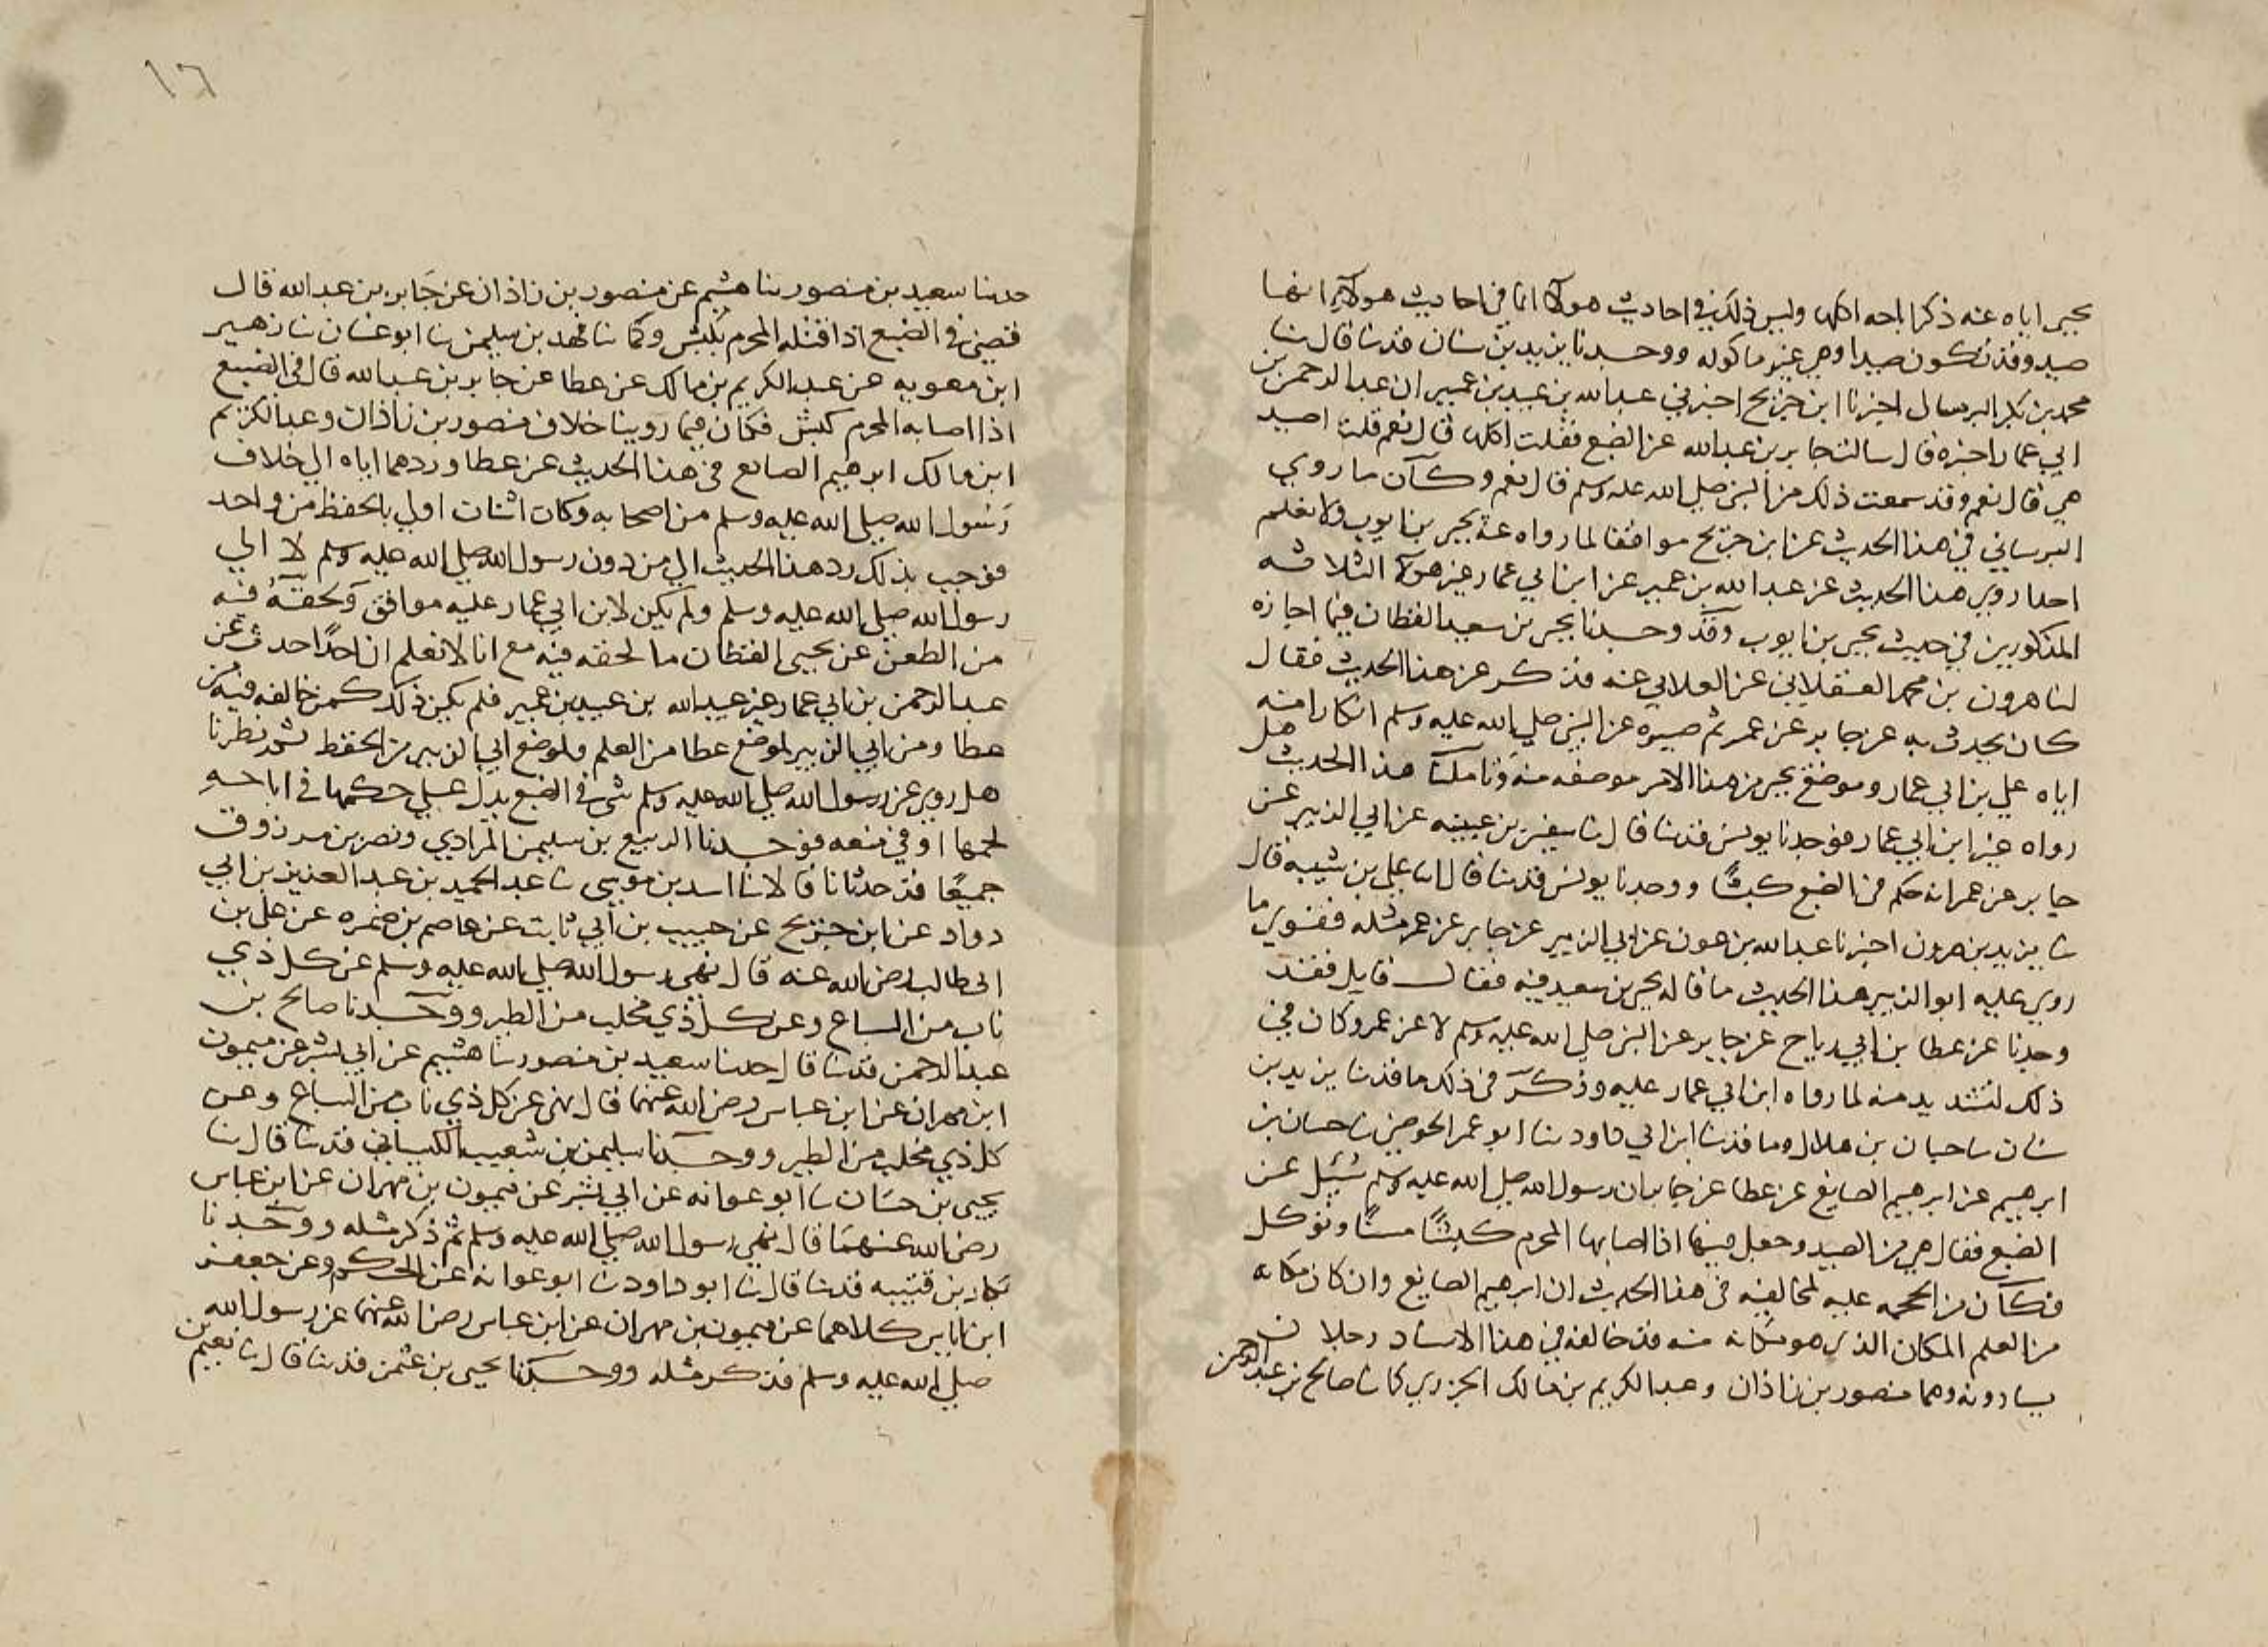 يحيى اياه عنه ذكر اباحه اكلها وليس ذلك في احاديث هولآ انما في احاديث هولآء انها
صيد وقد تكون صيدا وهي غير ماكوله ووجدنا يزيد بن سنان قدثنا قال ثنا
محمد بن بكر البرسال اخبرنا ابن جريج اخبرني عبد الله بن عبيد بن عمير ان عبد الرحمن بن
ابي عمار اخبره قال سالت جابر بن عبد الله عن الضبع فقلت اكلها قال نعم قلت اصيد
هي قال نعم وقد سمعت ذلك من النبي صلى الله عليه وسلم قال نعم وكان ما روي
البرساني في هذا الحديث عن ابن جريج موافقا لما رواه عنه يحيى بن ايوب ولا نعلم
احدا روي هذا الحديث عن عبد الله بن عمير عن ابن ابي عمار غير هولآ الثلاثه
المذكورين في حديث يحيى بن ايوب وقد وجدنا يحيى بن سعيد القطان فيما اجازه
لنا هرون بن محمد العسقلاني عن العلابي عنه فذكر عن هذا الحديث فقال
كان يحدث به عن جابر عن عمر ثم صيره عن النبي صلى الله عليه وسلم انكارا منه
اياه علي بن ابي عمار وموضع يحيى من هذا الامر موضعه منه وتاملنا هذا الحديث هل
رواه غير ابن ابي عمار فوجدنا يونس قدثنا قال ثنا سفين بن عيينه عن ابي الزبير عن
جابر عن عمر انه حكم في الضبع كبشا ووجدنا يونس قدثنا قال ثنا علي بن شيبه قال
ثنا يزيد بن هرون اخبرنا عبد الله بن عون عن ابي الزبير عن جابر عن عمر مثله فقوي ما
روي عليه ابو الزبير هذا الحديث ما قاله يحيى بن سعيد فيه فقال قايل فقد
وجدنا عن عطا بن ابي رباح عن جابر عن النبي صلى الله عليه وسلم لا عن عمر وكان في
ذلك لتشديد منه لما رواه ابن ابي عمار عليه وذكر في ذلك ما قدثنا يزيد بن
سنان ثنا حبان بن هلال وما قدثنا ابن ابي داود ثنا ابو عمر الحوضي ثنا حسان بن
ابرهيم عن ابرهيم الصايغ عن عطا عن جابر ان رسول الله صلى الله عليه وسلم سُئِل عن
الضبع فقال هي من الصيد وجعل فيها اذا اصابها المحرم كبشًا مسنًا وتوكل
فكان من الحجه عليه لمخالفيه في هذا الحديث ان ابرهيم الصايغ وان كان مكانه
من العلم المكان الذي هو مكانه منه قد خالفه في هذا الاسناد رجلان
يساوونه وهما منصور بن زاذان وعبد الكريم بن مالك الجزري كما ثنا صالح بن عبد الرحمن
١٦
حدثنا سعيد بن منصور ثنا هشيم عن منصور بن زاذان عن جَابر بن عبد الله قال
قضى في الضبع اذا قتله المحرم بكبش وكما ثنا فهد بن سليمن ثنا ابو غسان ثنا زهير
ابن معويه عن عبد الكريم بن مالك عن عطا عن جابر بن عبد الله قال في الضبع
اذا اصابه المحرم كبش فكان فيما روينا خلاف منصور بن زاذات وعبد الكريم
ابن مالك ابرهيم الصايع في هذا الحديث عن عطا وردهما اياه الي خلاف
رَسُول الله صلى الله عليه وسلم من اصحابه وكان اثنان اولي بالحفظ من واحد
فوجب بذلك رد هذا الحديث الي من دون رسول الله صلى الله عليه وسلم لا الي
رسول الله صلى الله عليه وسلم ولم يكن لابن ابي عمار عليه موافق وَلحقهُ فيه
من الطعن عن يحيى القطان ما لحقه فيه مع انا لا نعلم ان احدًا حدث عن
عبد الرحمن بن ابي عمار غير عبد الله بن عبيد بن عمير فلم يكن ذلك كمن خالفه فيه من
عطا ومن ابي الزبير لموضع عطا من العلم ولموضع ابي الزبير من الحفظ ثم نظرنا
هل روي عن رسول الله صلى الله عليه وسلم شي في الضبع يدل علي حكمها في اباحه
لحمها او في منعه فوجدنا الربيع بن سليمن المرادي ونصر بن مرزوق
جميعًا قد حدثانا قالا ثنا اسد بن موسى ثنا عبد الحميد بن عبد العزيز بن ابي
دواد عن ابن جريج عن حبيب بن ابي ثابت عن عاصم بن ضمره عن علي بن
ابي طالب رضي الله عنه قال نهى رسول الله صلى الله عليه وسلم عن كل ذي
ناب من السباع وعن كل ذي مخلب من الطير ووجدنا صالح بن
عبد الرحمن قدثنا قال حدثنا سعيد بن منصور ثنا هشيم عن ابي بشر عن ميمون
ابن مهران عن ابن عباس رضي الله عنهما قال نهى عن كل ذي ناب من السباع وعن
كل ذي مخلب من الطير ووجدنا سليمن بن شعيب الكيساني قدثنا قال ثنا
يحيى بن حسَان ثنا ابو عوانه عن ابي بشر عن ميمون بن مهران عن ابن عباس
رضي الله عنهمَا قال نهي رسول الله صلى الله عليه وسلم ثم ذكر مثله ووجدنا
بكار بن قتيبه قدثنا قال ثنا ابو داود ثنا ابو عوانه عن الحكم وعن جعفر
ابن اياس كلاهما عن ميمون بن مهران عن ابن عباس رضي الله عنهما عن رسول الله
صلى الله عليه وسلم فذكر مثله ووجدنا يحيى بن عثمن قدثنا قال ثنا نعيم بن